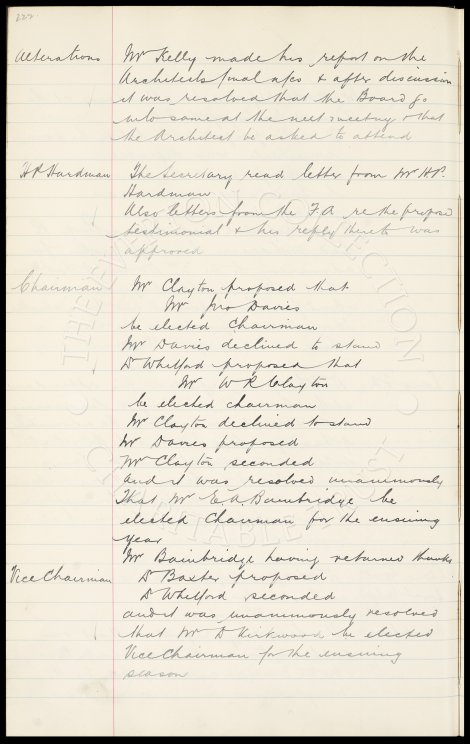 222
Alterations Mr Kelly made his report on the
Architects final a/cs & after discussion
it was resolved that the Board go
into same at the next meeting & that
the Architect be asked to attend
H P Hardman The Secretary read letter from Mr H P.
Hardman
Also letters from the F.A re the propose
testimonial & his reply thereto was
approved
Chairman Mr Clayton proposed that
Mr Jno Davies
be elected Chairman
Mr Davies declined to stand
Dr Whitford proposed that
Mr W R Clayton
be elected chairman
Mr Clayton declined to stand
Mr Davies proposed
Mr Clayton seconded
and it was resolved unanimously
That Mr E. A. Bainbridge be
elected Chairman for the ensuing
year
Mr Bainbridge having returned thanks
Vice Chairman Dr Baxter proposed
Dr Whitford seconded
and it was unanimously resolved
that Mr D Kirkwood be elected
Vice Chairman for the ensuing
season
THE EVERTON COLLECTION CHARITABLE TRUST